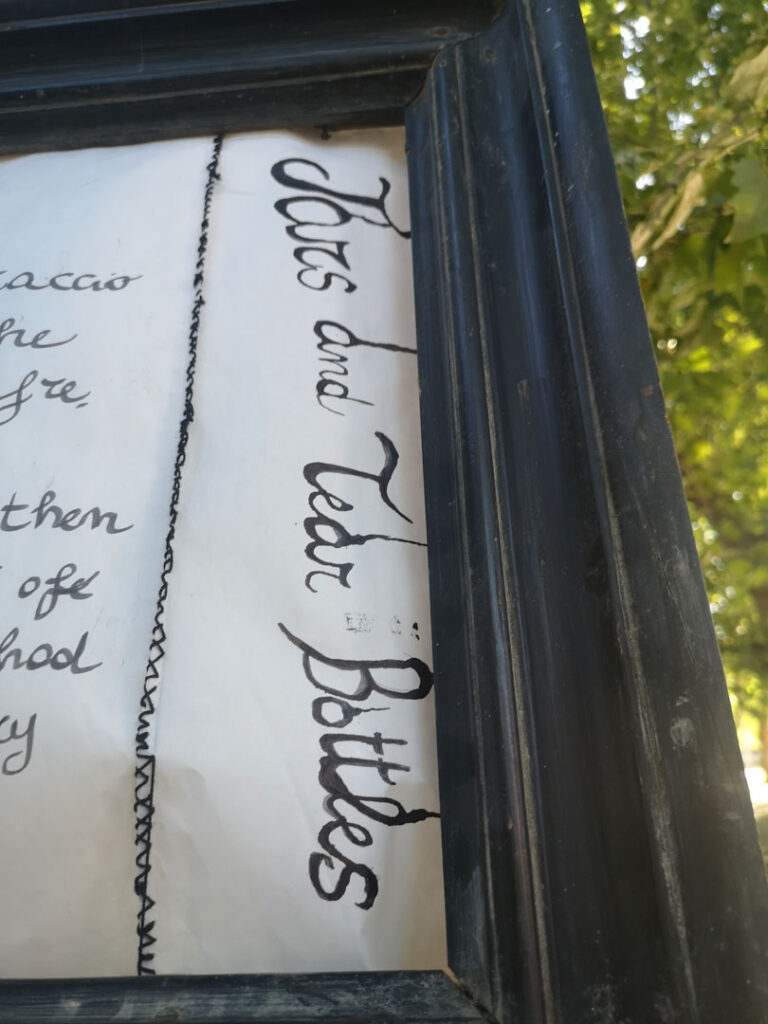 Jars and Tear Bottles
caccio
he
fre.
then
hod